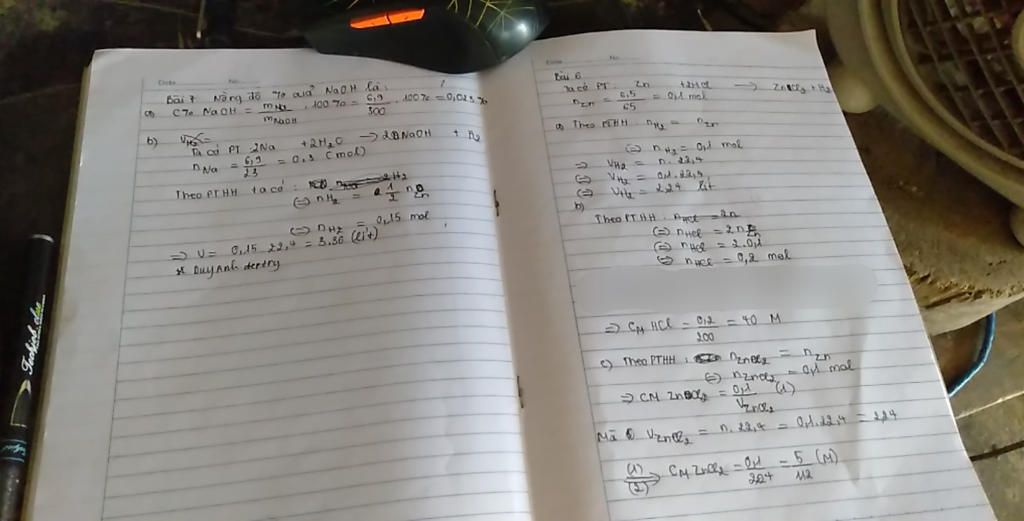 Bài 7 Nồng độ % của NaOH là:
a) C% NaOH = mH2/mNaOH . 100% = 6,9/300 . 100% = 0,023%
b) VH2 =
Ta có PT 2Na + 2H2O → 2NaOH + H2
nNa = 6,9/23 = 0,3 (mol)
Theo PTHH ta có:
(=) nH2 = 1/2 n
(=) nH2 = 0,15 mol
=> V = 0,15 . 22,4 = 3,36 (lít)
* Duy Anh dertry
Bài 6
Ta có PT: Zn + 2HCl → ZnCl2 + H2
nZn = 6,5/65 = 0,1 mol
a) Theo PTHH: nH2 = nZn
(=) nH2 = 0,1 mol
=> VH2 = n. 22,4
(=) VH2 = 0,1. 22,4
(=) VH2 = 2,24 lít
b)
Theo PTHH: nHCl = 2n
(=) nHCl = 2nZn
(=) nHCl = 2.0,1
(=) nHCl = 0,2 mol
=> CM HCl = 0,2/200 = 40 M
c) Theo PTHH: nZnCl2 = nZn
(=) nZnCl2 = 0,1 mol
=> CM ZnCl2 = 0,1/VZnCl2 (1)
Mà VZnCl2 = n. 22,4 = 0,1. 22,4 = 2,24
(1)/(2) => CM ZnCl2 = 0,1/2,24 = 5/112 (M)